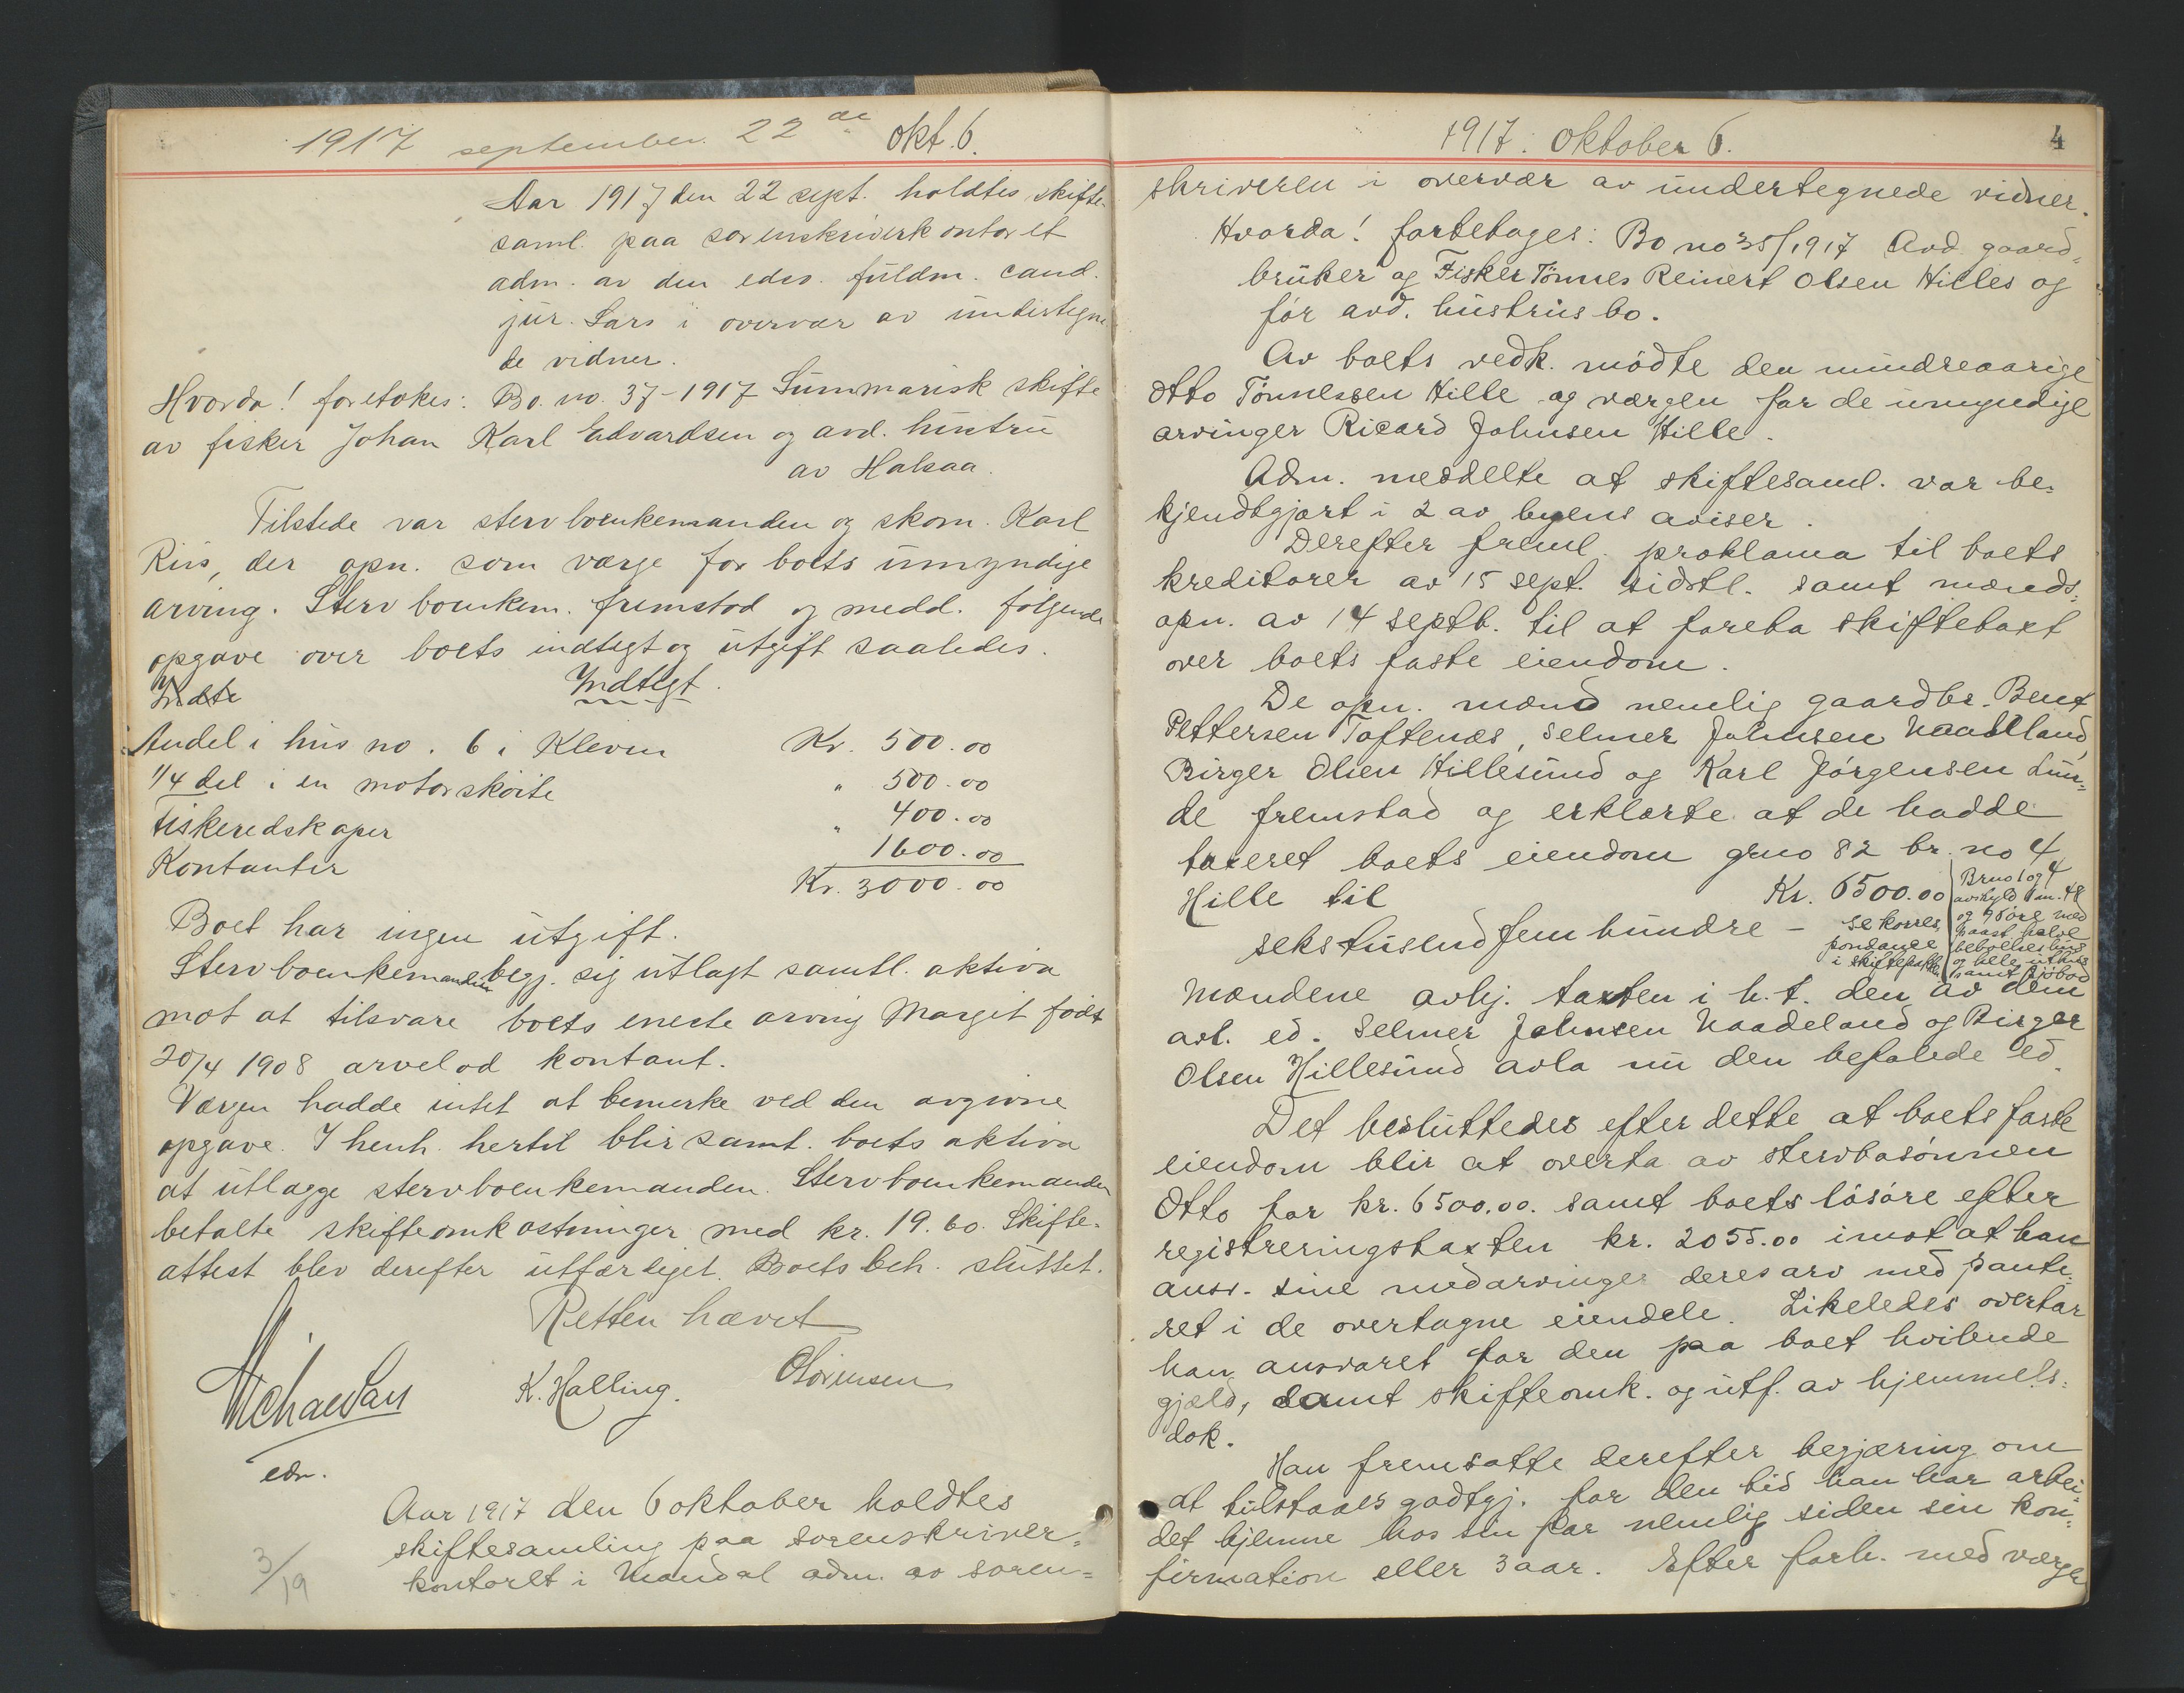 1917 september 22de okt. 6.
Aar 1917 den 22 sept. holdtes skifte-
saml. paa sorenskriverkontoret
adm. av den edsv. fuldm. cand.
jur. Lars i overvær av undertegne
de vidner.
Hvorda! foretokes: Bo. no. 37-1917 Summarisk skifte
av fisker Johan Karl Edvardsen og avd. hustru
av Halsaa.
Tilstede var stervboenkemanden og skom. Karl
Riis, der opn. som værge for boets umyndige
arving. Stervboenkem. fremstod og medd. følgende
opgave over boets indtegt og utgift saaledes.
Indte Indtegt.
Andel i hus no. 6 i Kleven Kr. 500.00
1/4 del i en motorskøite " 500.00
Fiskeredskaper " 400.00
Kontanter 1600.00
Kr. 3000.00
Boet har ingen utgift.
Stervboenkemanden begj. sig utlagt samtl. aktiva
mot at tilsvare boets eneste arving Margit født
20/4 1908 arvelod kontant.
Værgen hadde intet at bemerke ved den avgivne
opgave. I henh. hertil blir samt. boets aktiva
at utlægge stervboenkemanden. Stervboenkemanden
betalte skifteomkostninger med kr. 19.60. Skifte-
attest blev derefter utfærdiget. Boets beh. sluttet.
Retten hævet
K. Halling. O Sørensen
edsv.
Aar 1917 den 6 oktober holdtes
skiftesamling paa sorenskriver=
kontoret i Mandal adm. av soren=
3/19
1917. Oktober 6. 4
skriveren i overvær av undertegnede vidner.
Hvorda! foretages: Bo no 35/1917 Avd. gaard=
bruker og Fisker Tønnes Reinert Olsen Hilles og
før avd. hustrus bo.
Av boets vedk. mødte den mindreaarige
Otto Tønnessen Hille og værgen for de umyndige
arvinger Ricard Johnsen Hille.
Adm. meddelte at skiftesaml. var be=
kjendtgjort i 2 av byens aviser.
Derefter freml. proklama til boets
kreditorer av 15 sept. sidstl. samt mænds=
opn. av 14 septb. til at foreta skiftetaxt
over boets faste eiendom.
De opn. mænd nemlig gaardbr. Bent
Pettersen Toftenæs, Selmer Johnsen Naadeland,
Birger Olsen Hillesund og Karl Jørgensen Lun=
de fremstod og erklærte at de hadde
taxeret boets eiendom grno 82 br. no 4
Hille til Kr. 6500.00
sekstusendfemhundre - se korres
pondance
i skiftepakken
Bruo 1 og 4
avskyld 1 m. 48
og 95 øre med
paast. halve
beboelseshus
og hele uthus
samt sjøbod
Mændene avhj. taxten i h. t. den av dem
avl. ed. Selmer Johnsen Naadeland og Birger
Olsen Hillesund avla nu den befalede ed.
Det besluttedes efter dette at boets faste
eiendom blir at overta av stervbosønnen
Otto for kr. 6500.00. samt boets løsøre efter
registreringstaxten kr. 2055.00 imot at han
ansv. sine medarvinger deres arv med pante=
ret i de overtagne eiendele. Likeledes overtar
han ansvaret for den paa boet hvilende
gjæld, samt skifteomk. og utf. av hjemmels=
dok.
Han fremsatte derefter begjæring om
at tilstaaes godtgj. for den tid han har arbei=
det hjemme hos sin far nemlig siden sin kon=
firmation eller 3 aar. Efter forh. med værge